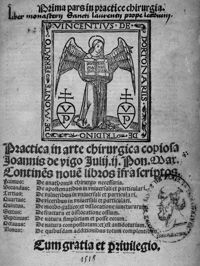 Prima pars in practice chirurgia.
Liber monastery Sancti laurentij prope leodium
VINCENTIVS · DE ·
PORTONARIIS ·
DE · TRIDINO ·
V P
V P
Practica in arte chirurgica copiosa
Joannis de vigo Julij .ij. Pon. Max.
Continens nouē libros ifra scriptos
Primus: De anathomia chirurgo necessaria.
Secundus: De apostematibus in vniuersali et particulari.
Tertius: De vulneribus in vniuersali et particulari.
Quartus: De vlceribus in vniuersali et particulari.
Quintus: De
Sextus: De fractura et dislocatione ossium.
Septimus: De natura simplicium et posse eorum.
Octauus: De natura compositorum
Nonus: De quibusdam additionibus totum complentibus.
Cum gratia et priuilegio.
1518